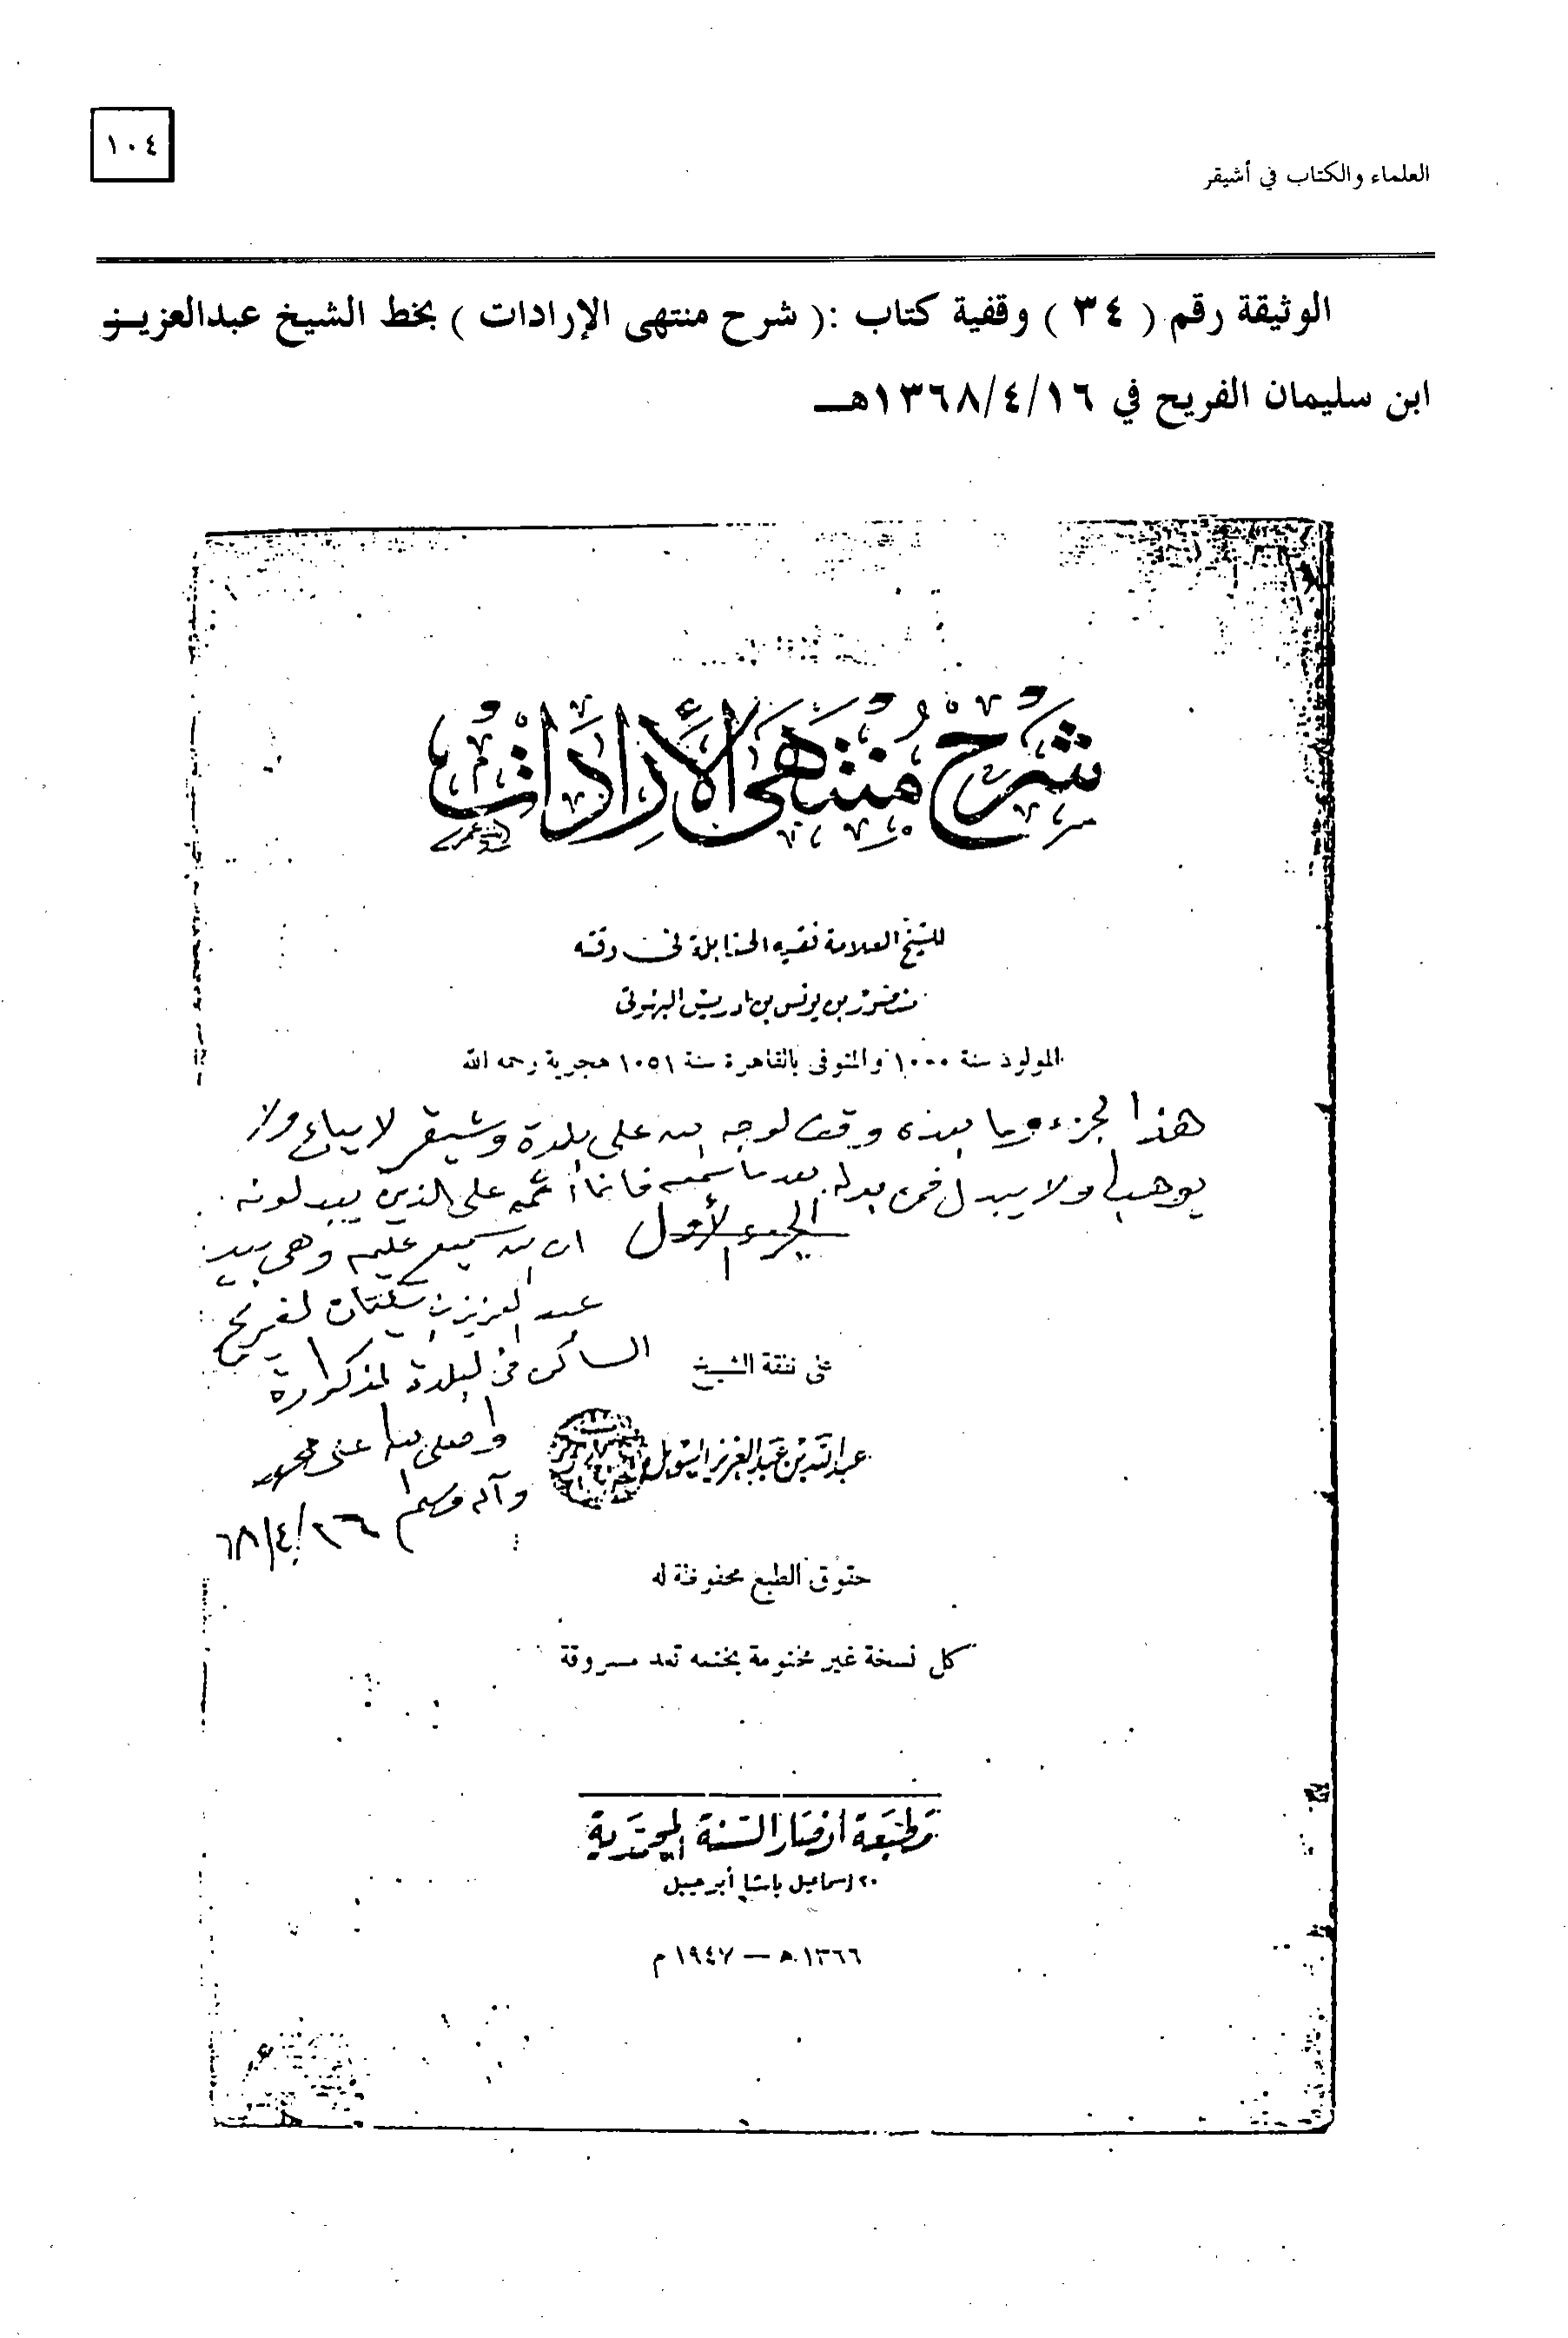 ١٠٤
العلماء والكتاب في أشيقر
الوثيقة رقم ( ٣٤ ) وقفية كتاب :( شرح منتهى الإرادات ) بخط الشيخ عبدالعزيز
ابن سليمان الفريح في ١٣٦٨/٤/١٦هـ
شَرْحُ مُنْتَهَى الإِرَادَاتِ
للشيخ العلامة فقيه الحنابلة في وقته
منصور بن يونس بن إدريس البهوتى
المولود سنة ١٠٠٠ والمتوفى بالقاهرة سنة ١٠٥١ هجرية رحمه الله
هذا الجزء وما بعده وقف لوجه الله على بلدة وشيقر لا يباع ولا
يوهب ولا يبدل فمن بدله بعد ما سمعه فانما أثمه على الذين يبدلونه
الجزء الأول
ان الله سميع عليم وهى بيد
عبد العزيز بن سليمان الفريح
الساكن في البلدة المذكورة
على نفقة الشيخ
وصلى الله على محمد
عبد الله بن عبد العزيز السويل
وآله وسلم ٦٨/٤/٢٦
حقوق الطبع محفوظة له
كل نسخة غير مختومة بختمه تعد مسروقة
مطبعة أنصار السنة المحمدية
٢٠ إسماعيل باشا أبو جبل
١٣٦٦ هـ — ١٩٤٧ م